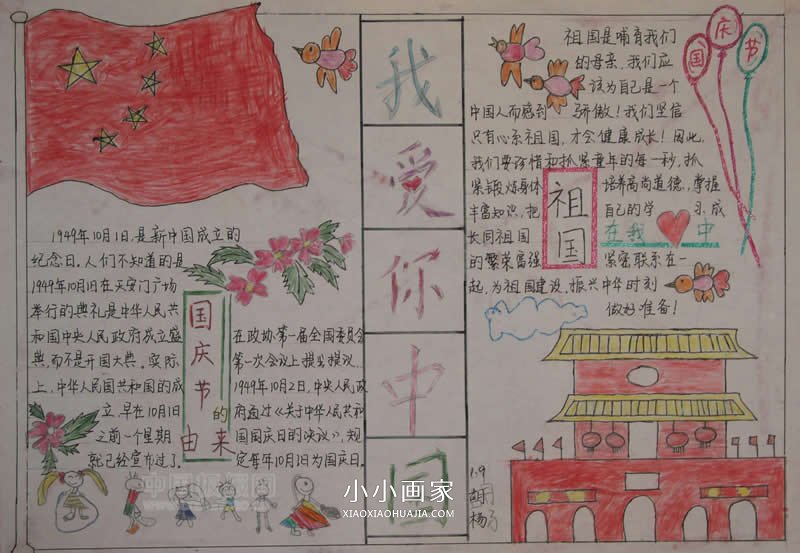 我
爱
你
中
国
1949年10月1日,是新中国成立的
纪念日。人们不知道的是
1949年10月1日在天安门广场
举行的典礼是中华人民共
和国中央人民政府成立盛
典,而不是开国大典。实际
上,中华人民国共和国的成
立,早在10月1日
之前一个星期
就已经宣布过了。
国庆节的由来
在政协第一届全国委员会
第一次会议上提出提议。
1949年10月2日,中央人民政
府通过《关于中华人民共和
国国庆日的决议》,规
定每年10月1日为国庆日。
祖国是哺育我们
的母亲,我们应
该为自己是一个
中国人而感到骄傲!我们坚信
只有心系祖国,才会健康成长!因此,
我们要珍惜和抓紧童年的每一秒,抓
紧锻炼身体 培养高尚道德,掌握
丰富知识,把 自己的学习、成
长同祖国
的繁荣富强 紧密联系在一
起,为祖国建设,振兴中华时刻
做好准备!
祖国
在我 中
国庆节
1.9
胡
杨
小小画家
XIAOXIAOHUAJIA.COM